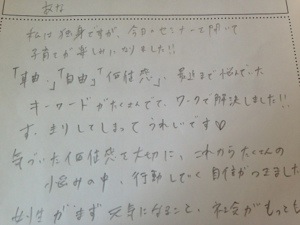 私は独身ですが、今日のセミナーを聞いて
子育てが楽しみになりました!!
「自由」「価値感」、最近まで悩んでいた
キーワードがたくさんでて、ワークで解決しました!!
してしまってうれしいです♡
気づいた価値感を大切に、これからたくさんの
悩みの中、行動していく自信がつきました
女性がまず元気になること、社会がもっとも